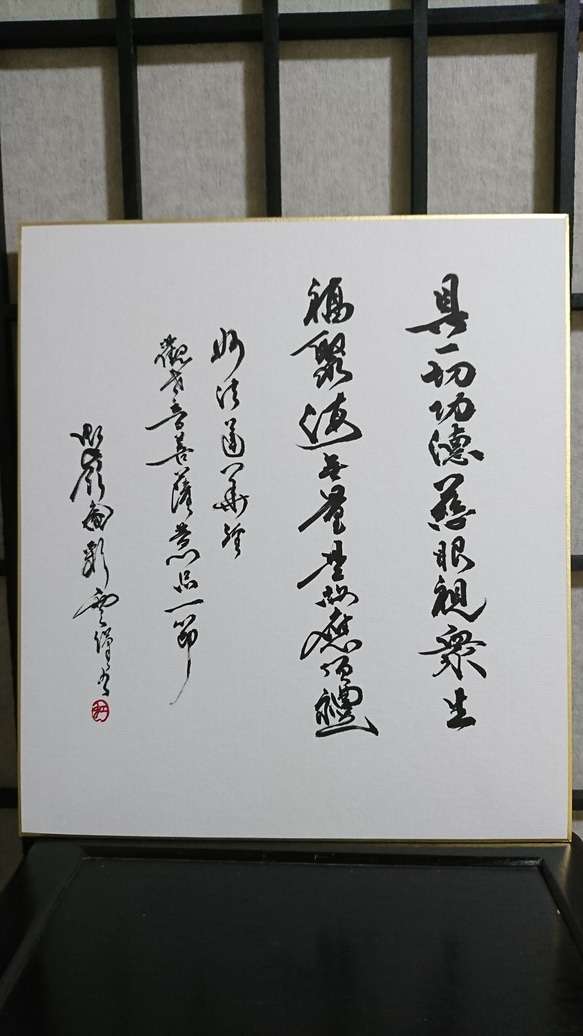 具一切功德慈眼視衆生
福聚海無量是故應頂禮
妙法蓮華經
觀世音菩薩普品一節